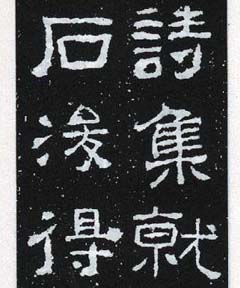 詩集就
石得